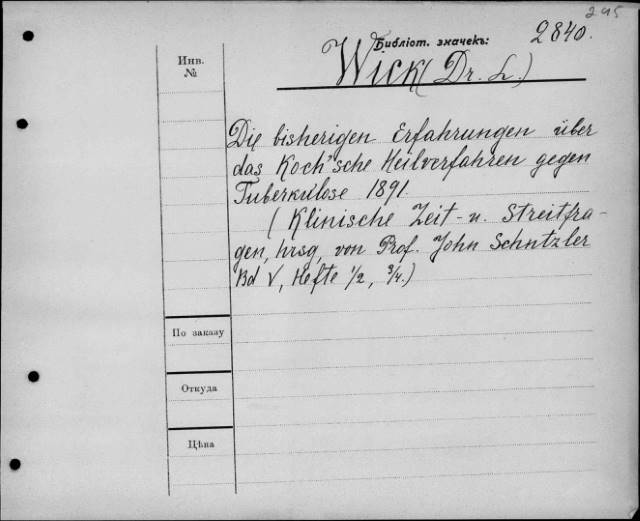 295
Библіот. значекъ: 2840.
Инв. №
Wick (Dr. L.)
Die bisherigen Erfahrungen über
das Koch'sche Heilverfahren gegen
Tuberkulose 1891.
(Klinische Zeit- u. Streitfra-
gen, hrsg, von Prof. John Schntzler
Bd V, Hefte 1/2, 3/4.)
По заказу
Откуда
Цѣна